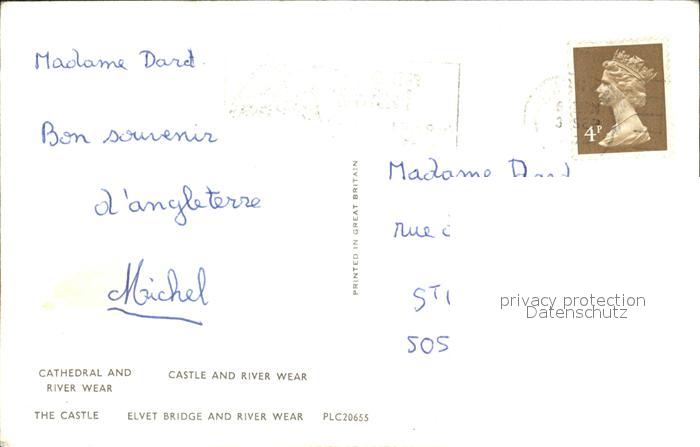 Madame Dard
Bon souvenir
d'angleterre
Michel
CATHEDRAL AND
RIVER WEAR
CASTLE AND RIVER WEAR
THE CASTLE
ELVET BRIDGE AND RIVER WEAR
PLC20655
PRINTED IN GREAT BRITAIN
4P
Madame
rue
ST
505
privacy protection
Datenschutz